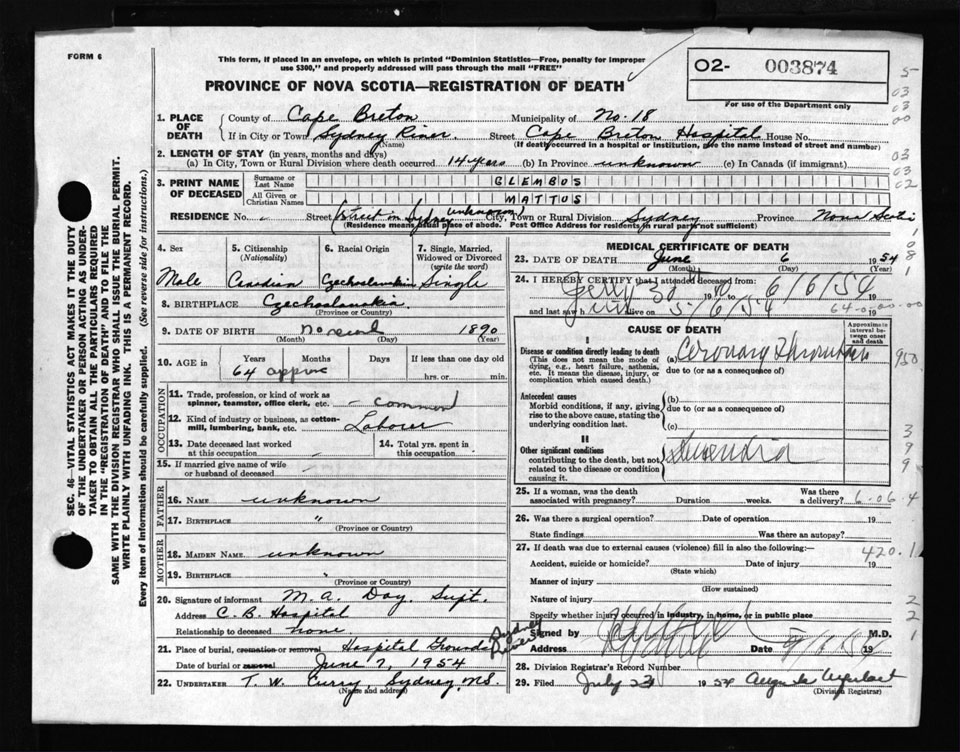 FORM 6
This form, if placed in an envelope, on which is printed "Dominion Statistics—Free, penalty for improper
use $300," and properly addressed will pass through the mail "FREE"
PROVINCE OF NOVA SCOTIA—REGISTRATION OF DEATH
02- 003874
For use of the Department only
1. PLACE OF DEATH
County of Cape Breton Municipality of No. 18
If in City or Town Sydney River. Street Cape Breton Hospital House No.
(Name) (If death occurred in a hospital or institution, give the name instead of street and number)
2. LENGTH OF STAY (in years, months and days)
(a) In City, Town or Rural Division where death occurred 14 years (b) In Province unknown (c) In Canada (if immigrant)
3. PRINT NAME OF DECEASED
Surname or Last Name GLEMBOS
All Given or Christian Names MATTUS
RESIDENCE No. Street (street in Sydney unknown) City, Town or Rural Division Sydney Province Nova Scotia
(Residence means usual place of abode. Post Office Address for residents in rural parts not sufficient)
4. Sex
Male
5. Citizenship (Nationality)
Canadian
6. Racial Origin
Czechoslovakian
7. Single, Married, Widowed or Divorced (write the word)
Single
8. BIRTHPLACE Czechoslovakia
(Province or Country)
9. DATE OF BIRTH no record 1890
(Month) (Day) (Year)
10. AGE in
Years Months Days If less than one day old
64 approx hrs. or min.
OCCUPATION
11. Trade, profession, or kind of work as
spinner, teamster, office clerk, etc. - common
12. Kind of industry or business, as cotton-
mill, lumbering, bank, etc. Laborer
13. Date deceased last worked
at this occupation
14. Total yrs. spent in
this occupation
15. If married give name of wife
or husband of deceased
FATHER
16. NAME unknown
17. BIRTHPLACE "
(Province or Country)
MOTHER
18. MAIDEN NAME unknown
19. BIRTHPLACE "
(Province or Country)
20. Signature of informant M. A. Day, Supt.
Address C. B. Hospital
Relationship to deceased none
21. Place of burial, cremation or removal Hospital Grounds Sydney River
Date of burial or removal June 7, 1954
22. UNDERTAKER T. W. Curry, Sydney, N.S.
(Name and address)
MEDICAL CERTIFICATE OF DEATH
23. DATE OF DEATH June 6 1954
(Month) (Day) (Year)
24. I HEREBY CERTIFY that I attended deceased from:
19 to 6/6/54 19
and last saw h alive on 5/6/54 19
64-0-00-00
CAUSE OF DEATH
Approximate interval between onset and death
I
Disease or condition directly leading to death
(This does not mean the mode of
dying, e.g., heart failure, asthenia,
etc. It means the disease, injury, or
complication which caused death.)
(a) Coronary Thrombosis
due to (or as a consequence of)
Antecedent causes
Morbid conditions, if any, giving
rise to the above cause, stating the
underlying condition last.
(b)
due to (or as a consequence of)
(c)
II
Other significant conditions
contributing to the death, but not
related to the disease or condition
causing it.
25. If a woman, was the death
associated with pregnancy? Duration weeks. Was there a delivery? 6.06.4
26. Was there a surgical operation? Date of operation 19
State findings Was there an autopsy?
27. If death was due to external causes (violence) fill in also the following:—
420.1
Accident, suicide or homicide? Date of injury 19
(State which)
Manner of injury
(How sustained)
Nature of injury
Specify whether injury occurred in industry, in home, or in public place
Signed by M.D.
Address Date 19
28. Division Registrar's Record Number
29. Filed July 23 1954
(Division Registrar)
SEC. 46—VITAL STATISTICS ACT MAKES IT THE DUTY
OF THE UNDERTAKER OR PERSON ACTING AS UNDER-
TAKER TO OBTAIN ALL THE PARTICULARS REQUIRED
IN THE "REGISTRATION OF DEATH" AND TO FILE THE
SAME WITH THE DIVISION REGISTRAR WHO SHALL ISSUE THE BURIAL PERMIT.
WRITE PLAINLY WITH UNFADING INK. THIS IS A PERMANENT RECORD.
Every item of Information should be carefully supplied. (See reverse side for instructions.)